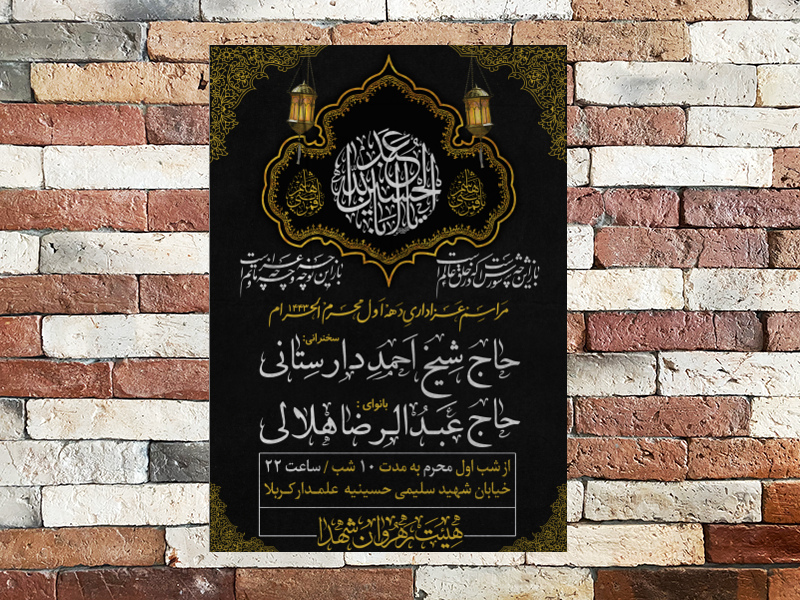 باز این چه شورش است که در خلق عالم است
باز این چه نوحه و چه عزا و چه ماتم است
مراسم عزاداری دهه اول محرم الحرام ۱۴۴۳
سخنرانی:
حاج شیخ احمد دارستانی
بانوای :
حاج عبدالرضا هلالی
از شب اول محرم به مدت ۱۰ شب / ساعت ۲۲
خیابان شهید سلیمی حسینیه علمدار کربلا
هیئت رهروان شهدا